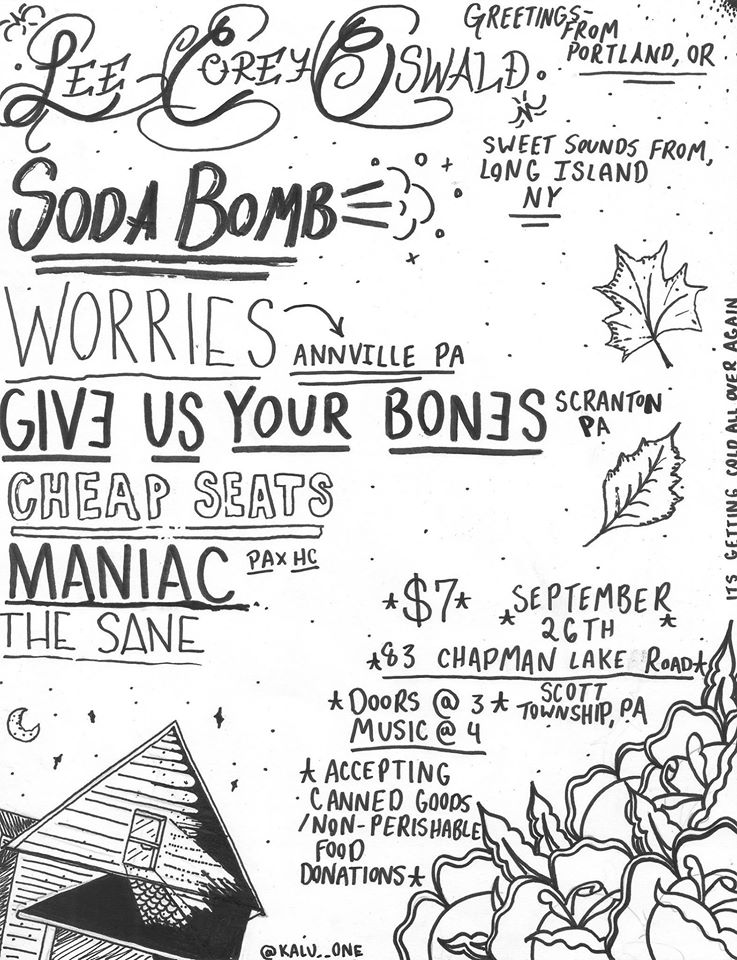 LEE COREY OSWALD.
GREETINGS-
FROM
PORTLAND, OR
SWEET SOUNDS FROM,
LONG ISLAND
NY
SODA BOMB
WORRIES
ANNVILLE PA
GIVE US YOUR BONES
SCRANTON
PA
CHEAP SEATS
MANIAC
PAXHC
THE SANE
ITS GETTING COLD ALL OVER AGAIN
*$7*
*SEPTEMBER
26TH*
*83 CHAPMAN LAKE ROAD*
SCOTT
TOWNSHIP, PA
*DOORS @ 3*
MUSIC @ 4
*ACCEPTING
CANNED GOODS
/NON-PERISHABLE
FOOD
DONATIONS*
@KALV__ONE